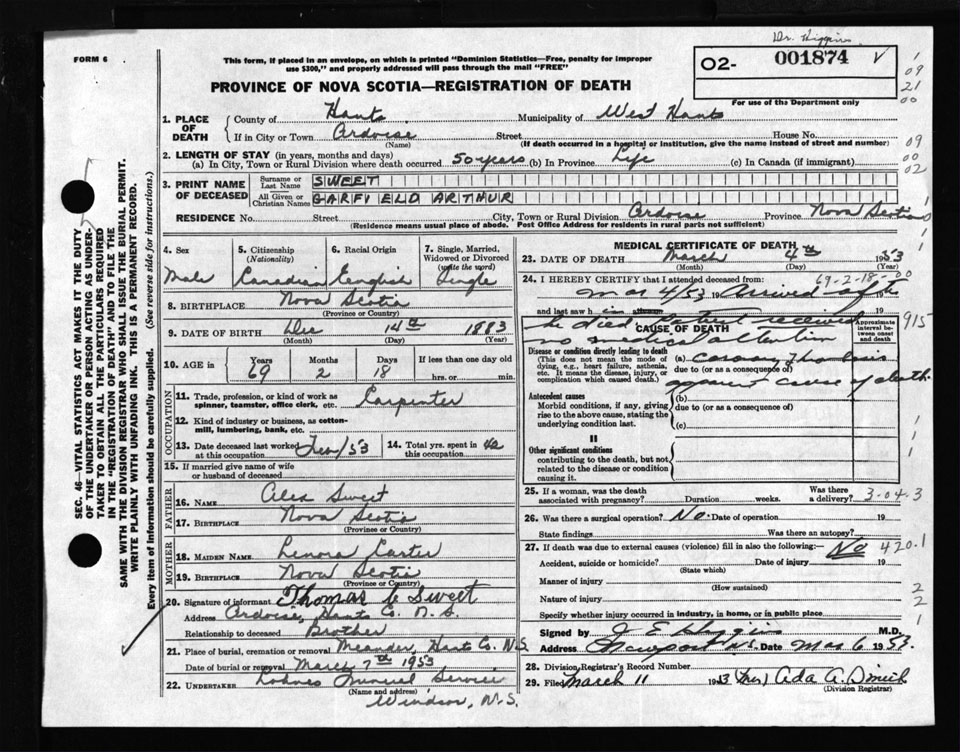 Dr. Higgins
FORM 6
This form, if placed in an envelope, on which is printed "Dominion Statistics—Free, penalty for improper
use $300," and properly addressed will pass through the mail "FREE"
O2-
001874
For use of the Department only
PROVINCE OF NOVA SCOTIA—REGISTRATION OF DEATH
1. PLACE OF DEATH
County of Hants Municipality of West Hants
If in City or Town Ardoise Street House No.
(Name) (If death occurred in a hospital or institution, give the name instead of street and number)
2. LENGTH OF STAY (in years, months and days)
(a) In City, Town or Rural Division where death occurred 50 years (b) In Province Life (c) In Canada (if immigrant)
3. PRINT NAME OF DECEASED
Surname or Last Name SWEET
All Given or Christian Names GARFIELD ARTHUR
RESIDENCE No. Street City, Town or Rural Division Ardoise Province Nova Scotia
(Residence means usual place of abode. Post Office Address for residents in rural parts not sufficient)
4. Sex
Male
5. Citizenship (Nationality)
Canadian
6. Racial Origin
English
7. Single, Married, Widowed or Divorced (write the word)
Single
8. BIRTHPLACE Nova Scotia
(Province or Country)
9. DATE OF BIRTH Dec 14th 1883
(Month) (Day) (Year)
10. AGE in Years 69 Months 2 Days 18 If less than one day old
hrs. or min.
11. Trade, profession, or kind of work as
spinner, teamster, office clerk, etc. Carpenter
12. Kind of industry or business, as cotton-
mill, lumbering, bank, etc.
13. Date deceased last worked at this occupation Feb/53
14. Total yrs. spent in this occupation 40
15. If married give name of wife
or husband of deceased
FATHER
16. NAME Alex Sweet
17. BIRTHPLACE Nova Scotia
(Province or Country)
MOTHER
18. MAIDEN NAME Lenora Carter
19. BIRTHPLACE Nova Scotia
(Province or Country)
20. Signature of informant Thomas Sweet
Address Ardoise, Hants Co. N.S.
Relationship to deceased Brother
21. Place of burial, cremation or removal Meander, Hants Co. N.S.
Date of burial or removal March 7th 1953
22. UNDERTAKER Funeral Service
(Name and address)
Windsor, N.S.
MEDICAL CERTIFICATE OF DEATH
23. DATE OF DEATH March 4th 1953
(Month) (Day) (Year)
69-2-18-00
24. I HEREBY CERTIFY that I attended deceased from:
Mar 4/53 Arrived after 19
and last saw h 19
he died Patient received
no medical attention
915
CAUSE OF DEATH
Approximate interval between onset and death
Disease or condition directly leading to death
(This does not mean the mode of
dying, e.g., heart failure, asthenia,
etc. It means the disease, injury, or
complication which caused death.)
(a) Coronary Thrombosis
due to (or as a consequence of)
apparent cause of death.
Antecedent causes
Morbid conditions, if any, giving
rise to the above cause, stating the
underlying condition last.
(b)
due to (or as a consequence of)
(c)
II
Other significant conditions
contributing to the death, but not
related to the disease or condition
causing it.
25. If a woman, was the death
associated with pregnancy? Duration weeks. Was there a delivery?
3-04-3
26. Was there a surgical operation? No. Date of operation 19
State findings Was there an autopsy?
27. If death was due to external causes (violence) fill in also the following:— No 420.1
Accident, suicide or homicide? Date of injury 19
(State which)
Manner of injury
(How sustained)
Nature of injury
Specify whether injury occurred in industry, in home, or in public place
Signed by J E Higgins M.D.
Address Newport N.S. Date Mar 6 1953.
28. Division Registrar's Record Number
29. Filed March 11 1953 (Mrs) Ada A.
(Division Registrar)
SEC. 46—VITAL STATISTICS ACT MAKES IT THE DUTY
OF THE UNDERTAKER OR PERSON ACTING AS UNDER-
TAKER TO OBTAIN ALL THE PARTICULARS REQUIRED
IN THE "REGISTRATION OF DEATH" AND TO FILE THE
SAME WITH THE DIVISION REGISTRAR WHO SHALL ISSUE THE BURIAL PERMIT.
WRITE PLAINLY WITH UNFADING INK. THIS IS A PERMANENT RECORD.
Every item of Information should be carefully supplied. (See reverse side for instructions.)
1
09
21
00
09
00
02
1
1
1
2
2
1